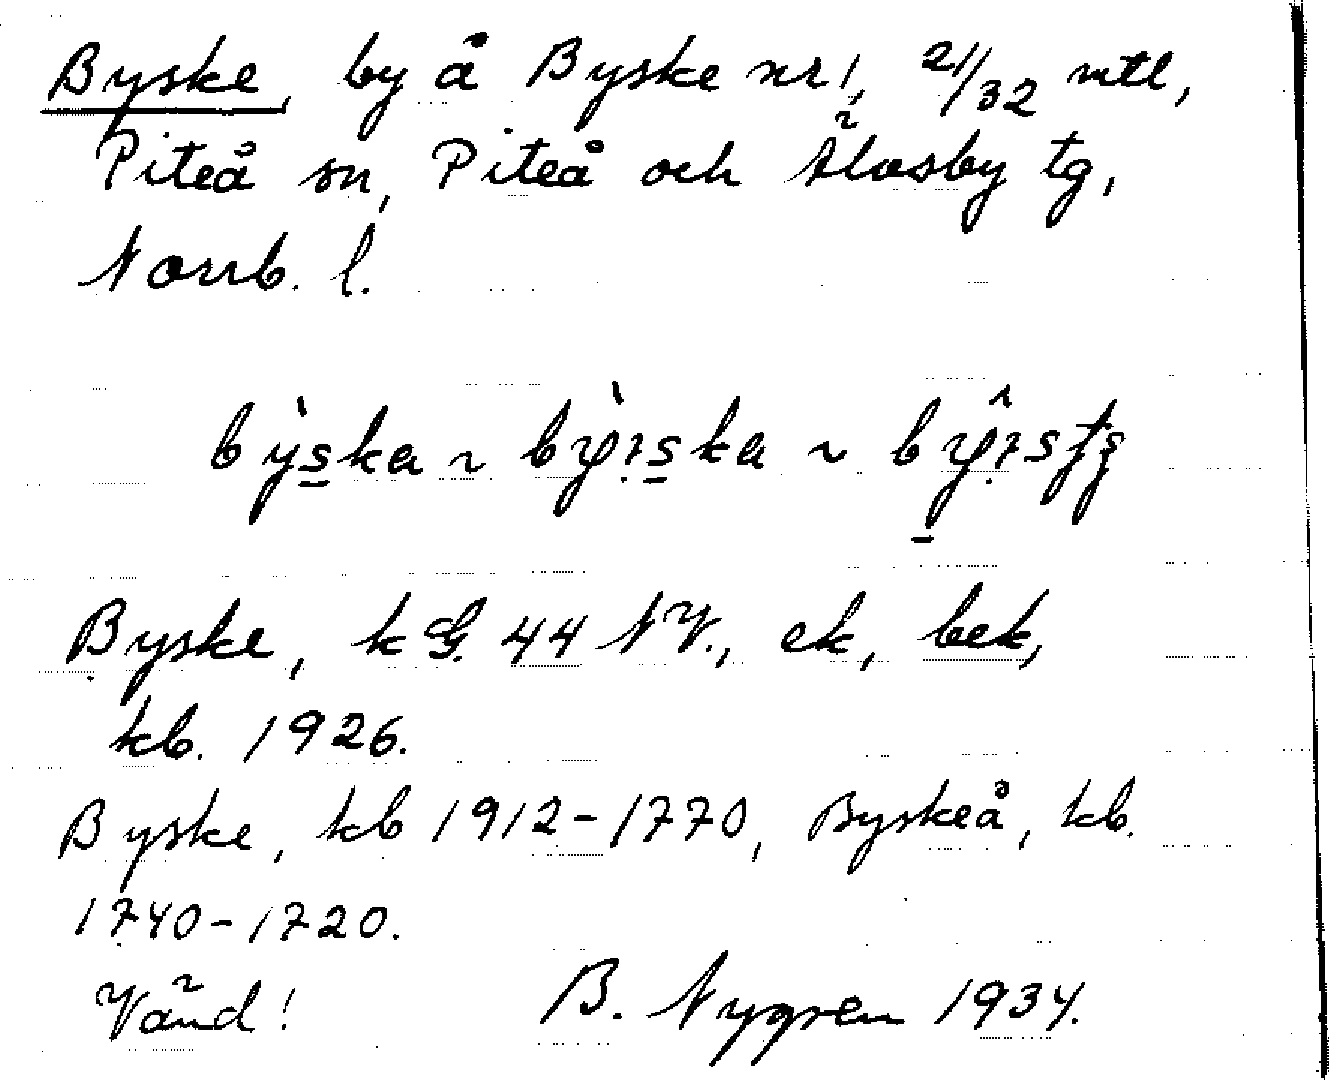 Byske, by å Byske nr 1, 21/32 mtl,
Piteå sn, Piteå och Älvsby tg,
Norrb. l.
Byske, kG. 44 NV., ek, bek,
kb. 1926.
Byske, kb 1912-1770, Byskeå, kb.
1740-1720.
Vänd! B. Nygren 1934.